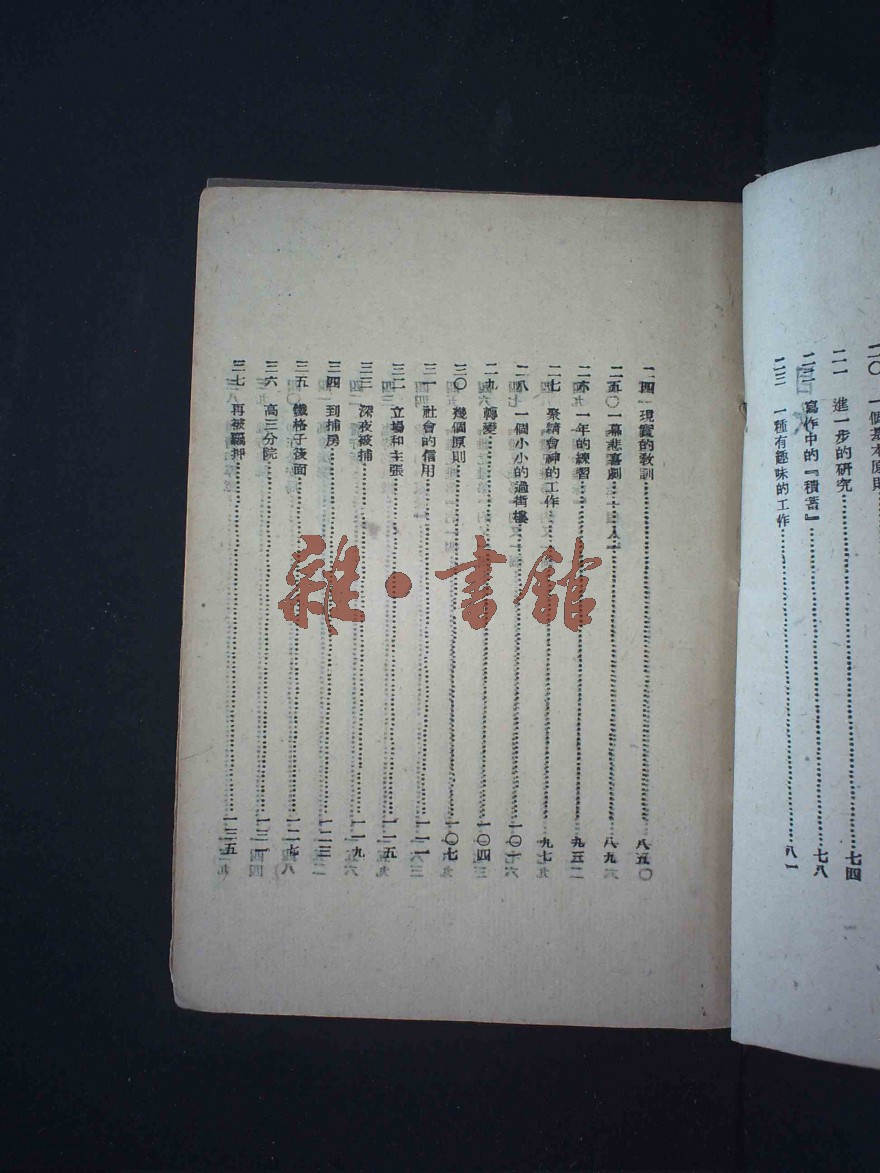 二〇 一個基本原則
二一 進一步的研究……七四
二二 寫作中的『積蓄』……七八
二三 一種有趣味的工作……八一
二四 現實的教訓……八五
二五 一幕悲喜劇……八九
二六 一年的練習……
二七 聚精會神的工作……九七
二八 一個小小的過街樓……一〇一
二九 轉變……一〇四
三〇 幾個原則……一〇七
三一 社會的信用……一一一
三二 立場和主張……一一五
三三 深夜被捕……一一九
三四 到捕房……一二三
三五 鐵格子後面……一二七
三六 高三分院……一三一
三七 再被羈押……一三五
雜·書館